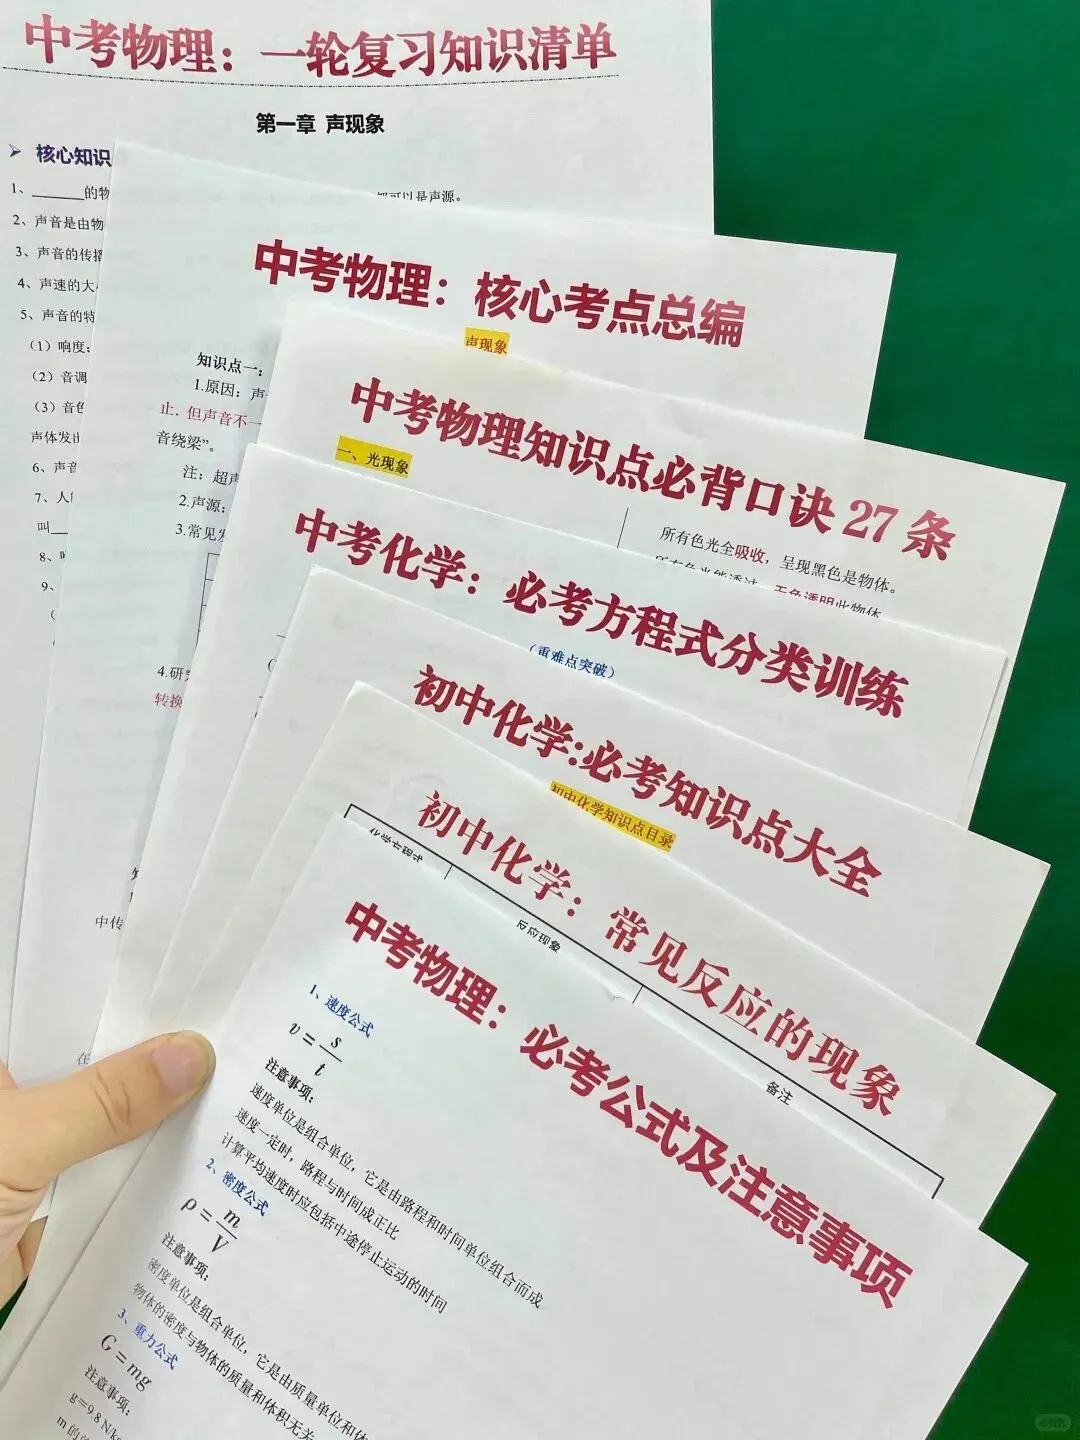 中考物理：一轮复习知识清单
第一章 声现象
核心知识
1、______的物
都可以是声源。
2、声音是由物
3、声音的传播
4、声速的大小
5、声音的特
（1）响度：
（2）音调
（3）音色
声体发出
6、声音
7、人
叫
8、
9、
中考物理：核心考点总编
声现象
知识点一：
1.原因：声
止．但声音不一
音绕梁”。
注：超声
2.声源：
3.常见发
4.研究
转换
中传
在
中考物理知识点必背口诀 27 条
一、光现象
所有色光全吸收，呈现黑色是物体。
所有色光能透过，无色透明此物体
中考化学：必考方程式分类训练
（重难点突破）
初中化学:必考知识点大全
初中化学知识点目录
初中化学：常见反应的现象
化学方程式
反应现象
备注
中考物理：必考公式及注意事项
1、速度公式
v = s/t
注意事项：
速度单位是组合单位，它是由路程和时间单位组合而成
速度一定时，路程与时间成正比
计算平均速度时应包括中途停止运动的时间
2、密度公式
ρ = m/V
注意事项：
密度单位是组合单位，它是由质量单位和体
物体的密度与物体的质量和体积无关
3、重力公式
G = mg
注意事项：
g=9.8 N/kg
m 的